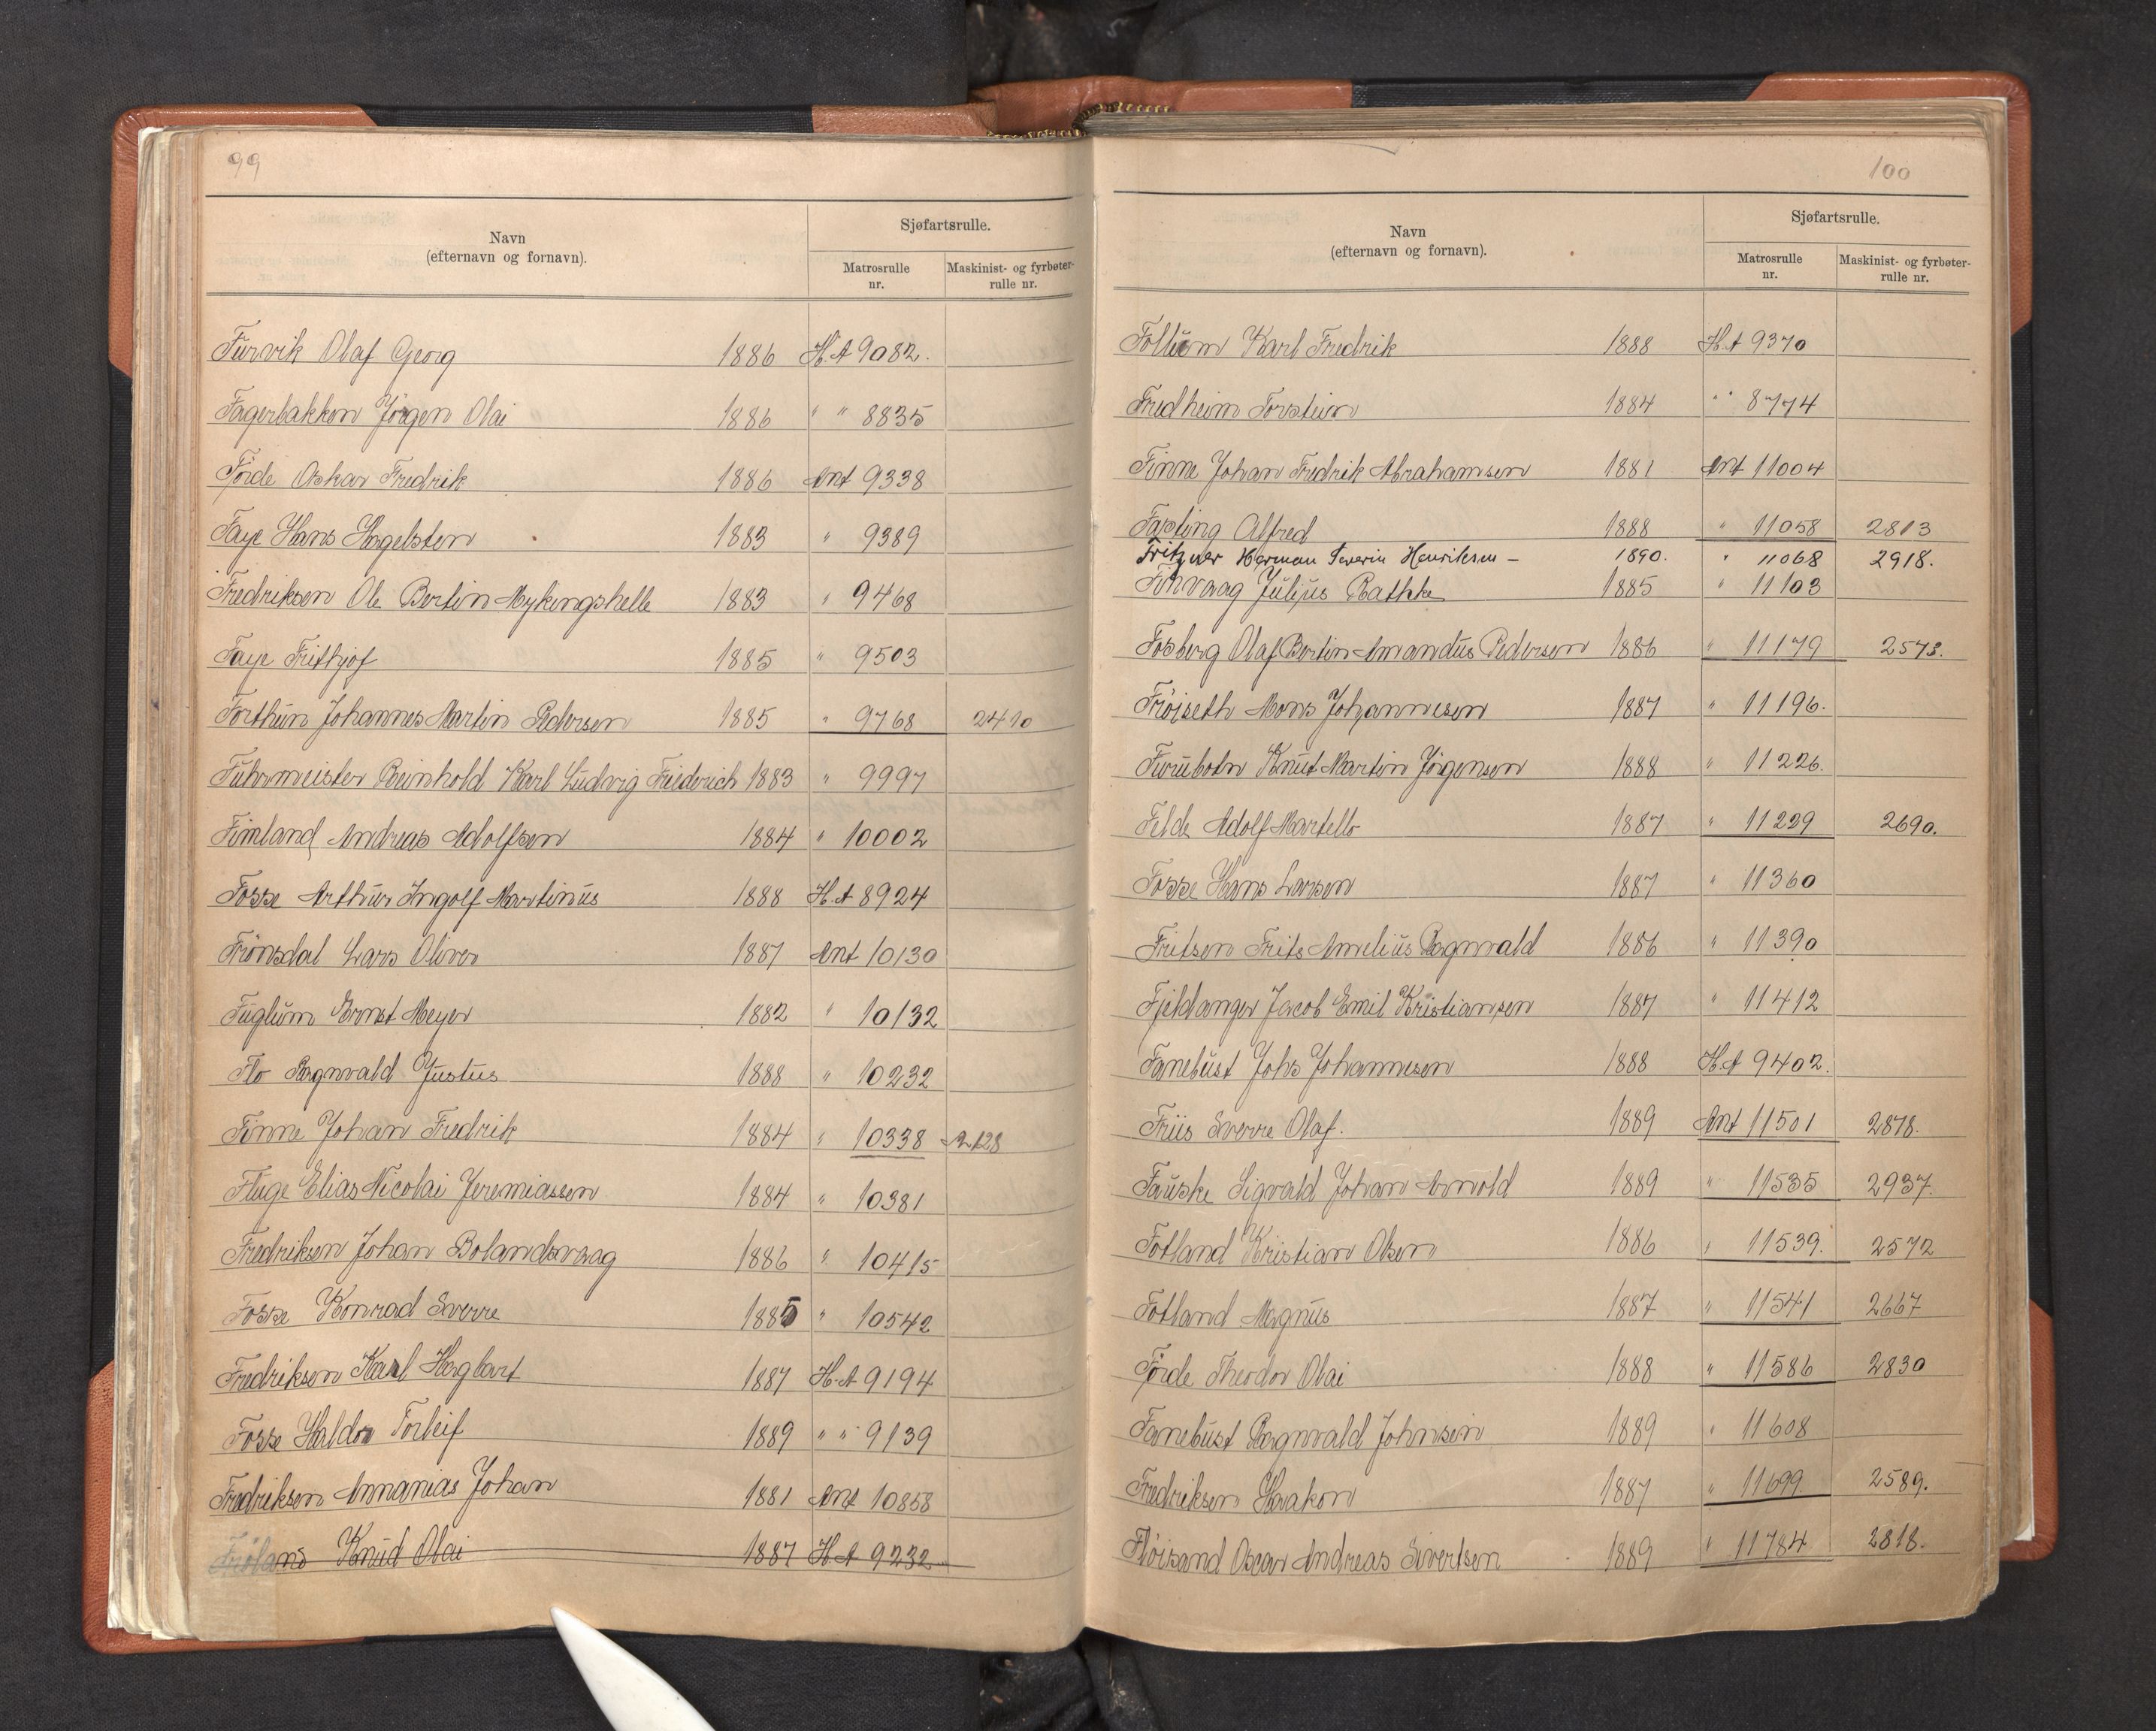 99
Navn
(efternavn og fornavn).
Sjøfartsrulle.
Matrosrulle
nr.
Maskinist- og fyrbøter-
rulle nr.
Furvik Olaf Georg 1886 H.A 9082.
Fagerbakken Jörgen Olai 1886 " " 8835
Förde Oskar Fredrik 1886 Ant 9338
Faye Hans Hagelsten 1883 " 9389
Fredriksen Ole Bertin Mykingshelle 1883 " 9468
Faye Frithjof 1885 " 9503
Forthun Johannes Martin Pedersen 1885 " 9768 2410
Fuhrmeister Reinhold Karl Ludvig Friederich 1883 " 9997
Fimland Andreas Adolfsen 1884 " 10002
Fosse Arthur Ingolf Martinus 1888 H.A 8924
Frönsdal Lars Oliver 1887 Ant 10130
Fuglum Ernst Meyer 1882 " 10132
Flo Ragnvald Justus 1888 " 10232
Finne Johan Fredrik 1884 " 10338 2128
Fluge Elias Nicolai Jeremiassen 1884 " 10381
Fredriksen Johan Bolandsvaag 1886 " 10415
Fosse Konrad Sverre 1885 " 10542
Fredriksen Karl Hagbart 1887 H.A 9194
Fosse Haldor Torleif 1889 " " 9139
Fredriksen Annanias Johan 1881 Ant 10858
Fröland Knud Olai 1887 H.A 9232
100
Navn
(efternavn og fornavn).
Sjøfartsrulle.
Matrosrulle
nr.
Maskinist- og fyrbøter-
rulle nr.
Follum Karl Fredrik 1888 H.A 9370
Fredheim Torstein 1884 " " 8774
Finne Johan Fredrik Abrahamsen 1881 Ant 11004
Fasting Alfred 1888 " 11058 2813
Fritzner Herman Severin Henriksen - 1890. " 11068 2918.
Julius Rathke 1885 " 11103
Fosberg Olaf Bertin Amandus Pedersen 1886 " 11179 2573.
Fröiseth Mons Johannesen 1887 " 11196.
Furubotn Knut Martin Jörgensen 1888 " 11226.
Felde Adolf Martello 1887 " 11229 2690.
Fosse Hans Larsen 1887 " 11360
Fritsen Frits Amelius Ragnvald 1886 " 11390
Fjeldanger Jacob Emil Kristiansen 1887 " 11412
Fanebust Johs Johannesen 1888 H.A 9402.
Friis Sverre Olaf. 1889 Ant 11501 2878.
Fauske Sigvald Johan Arnold 1889 " 11535 2937.
Fotland Kristian Olsen 1886 " 11539. 2572
Fotland Magnus 1887 " 11541 2667
Förde Theodor Olai 1888 " 11586 2830
Fanebust Ragnvald Johnsen 1889 " 11608
Fredriksen Haakon 1887 " 11699 2589.
Flöisand Oscar Andreas Sivertsen 1889 " 11784 2818.